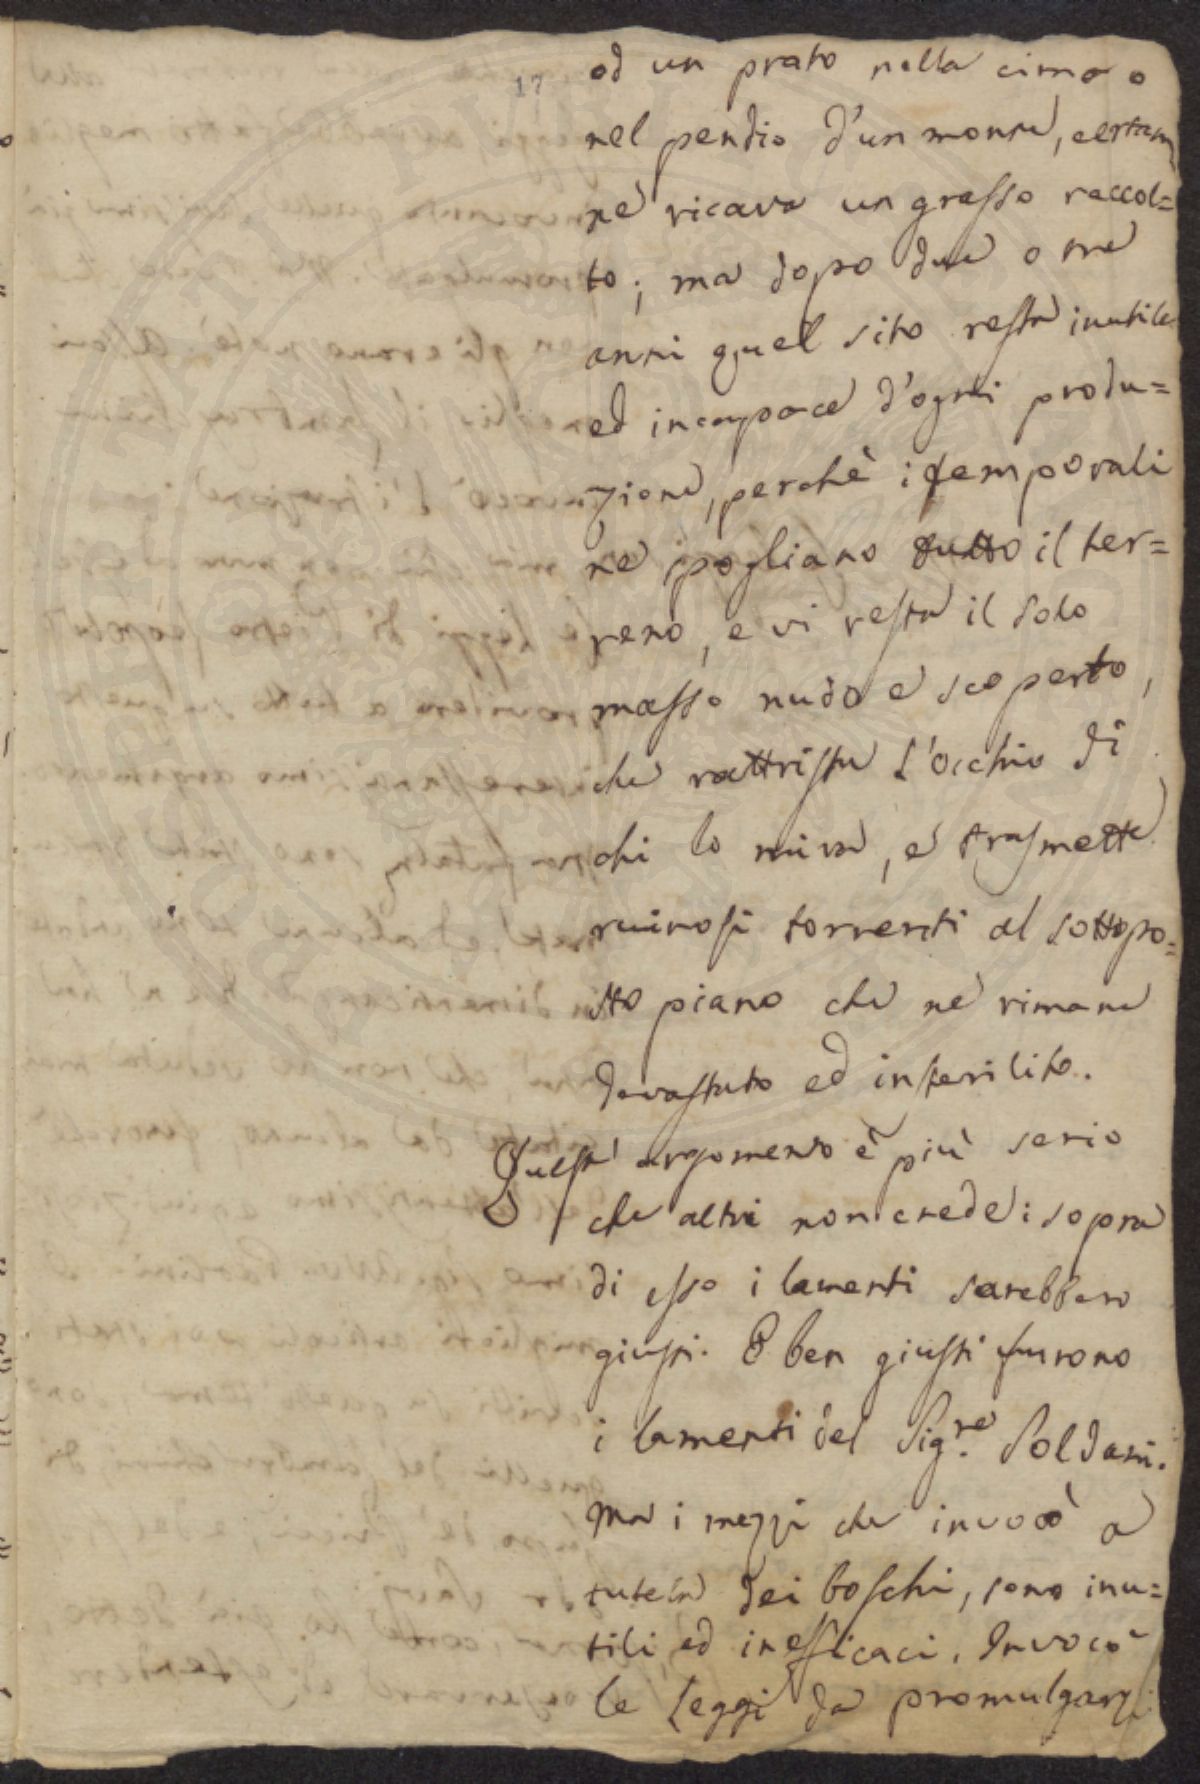 17
od un prato nella cima o
nel pendio d'un monte, certam
ne ricava un grasso raccol=
to; ma dopo due o tre
anni quel sito resta inutile
ed incapace d'ogni produ=
zione, perchè i temporali
ne spogliano tutto il ter=
reno, e vi resta il solo
masso nudo e scoperto,
che rattrista l'occhio di
chi lo mira, e trasmette
ruinosi torrenti al sottopo=
sto piano che ne rimane
devastato ed insterilito.
Quest' argomento è più serio
che altri non crede: sopra
di esso i lamenti sarebbero
giusti. E ben giusti furono
i lamenti del Sig.re Soldani.
Ma i mezzi che invocò a
tutela dei boschi, sono inu=
tili ed inefficaci. Invocò
le leggi da promulgarsi